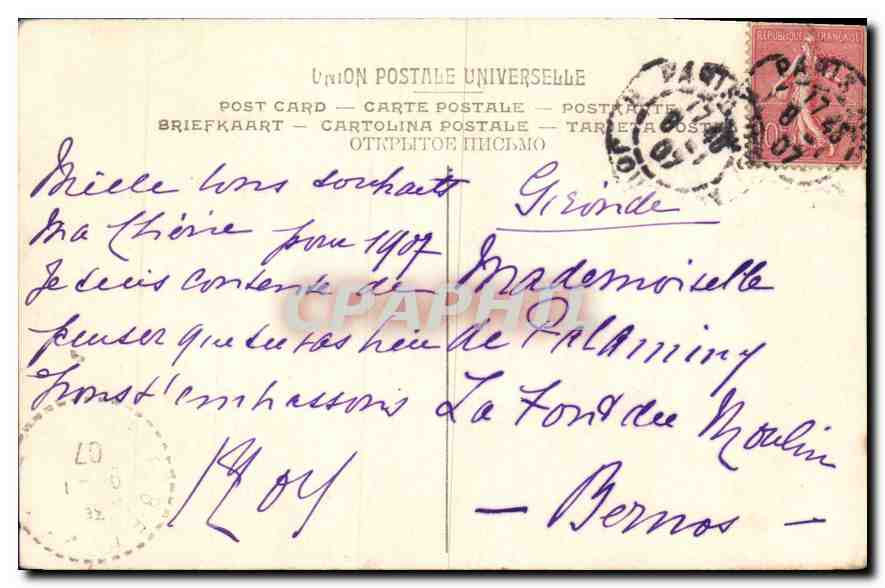 UNION POSTALE UNIVERSELLE
POST CARD — CARTE POSTALE — POSTKARTE
BRIEFKAART — CARTOLINA POSTALE — TARJETA POSTAL
ОТКРЫТОЕ ПИСЬМО
REPUBLIQUE FRANÇAISE
10
PARIS
PARIS
Mille bons souhaits
Ma Chérie pour 1907
Je suis contente de
penser que tu vas bien
Nous t'embrassons
Gironde
Mademoiselle
de Palaminy
La Font du Moulin
— Bernos —
07
CPAPHIL